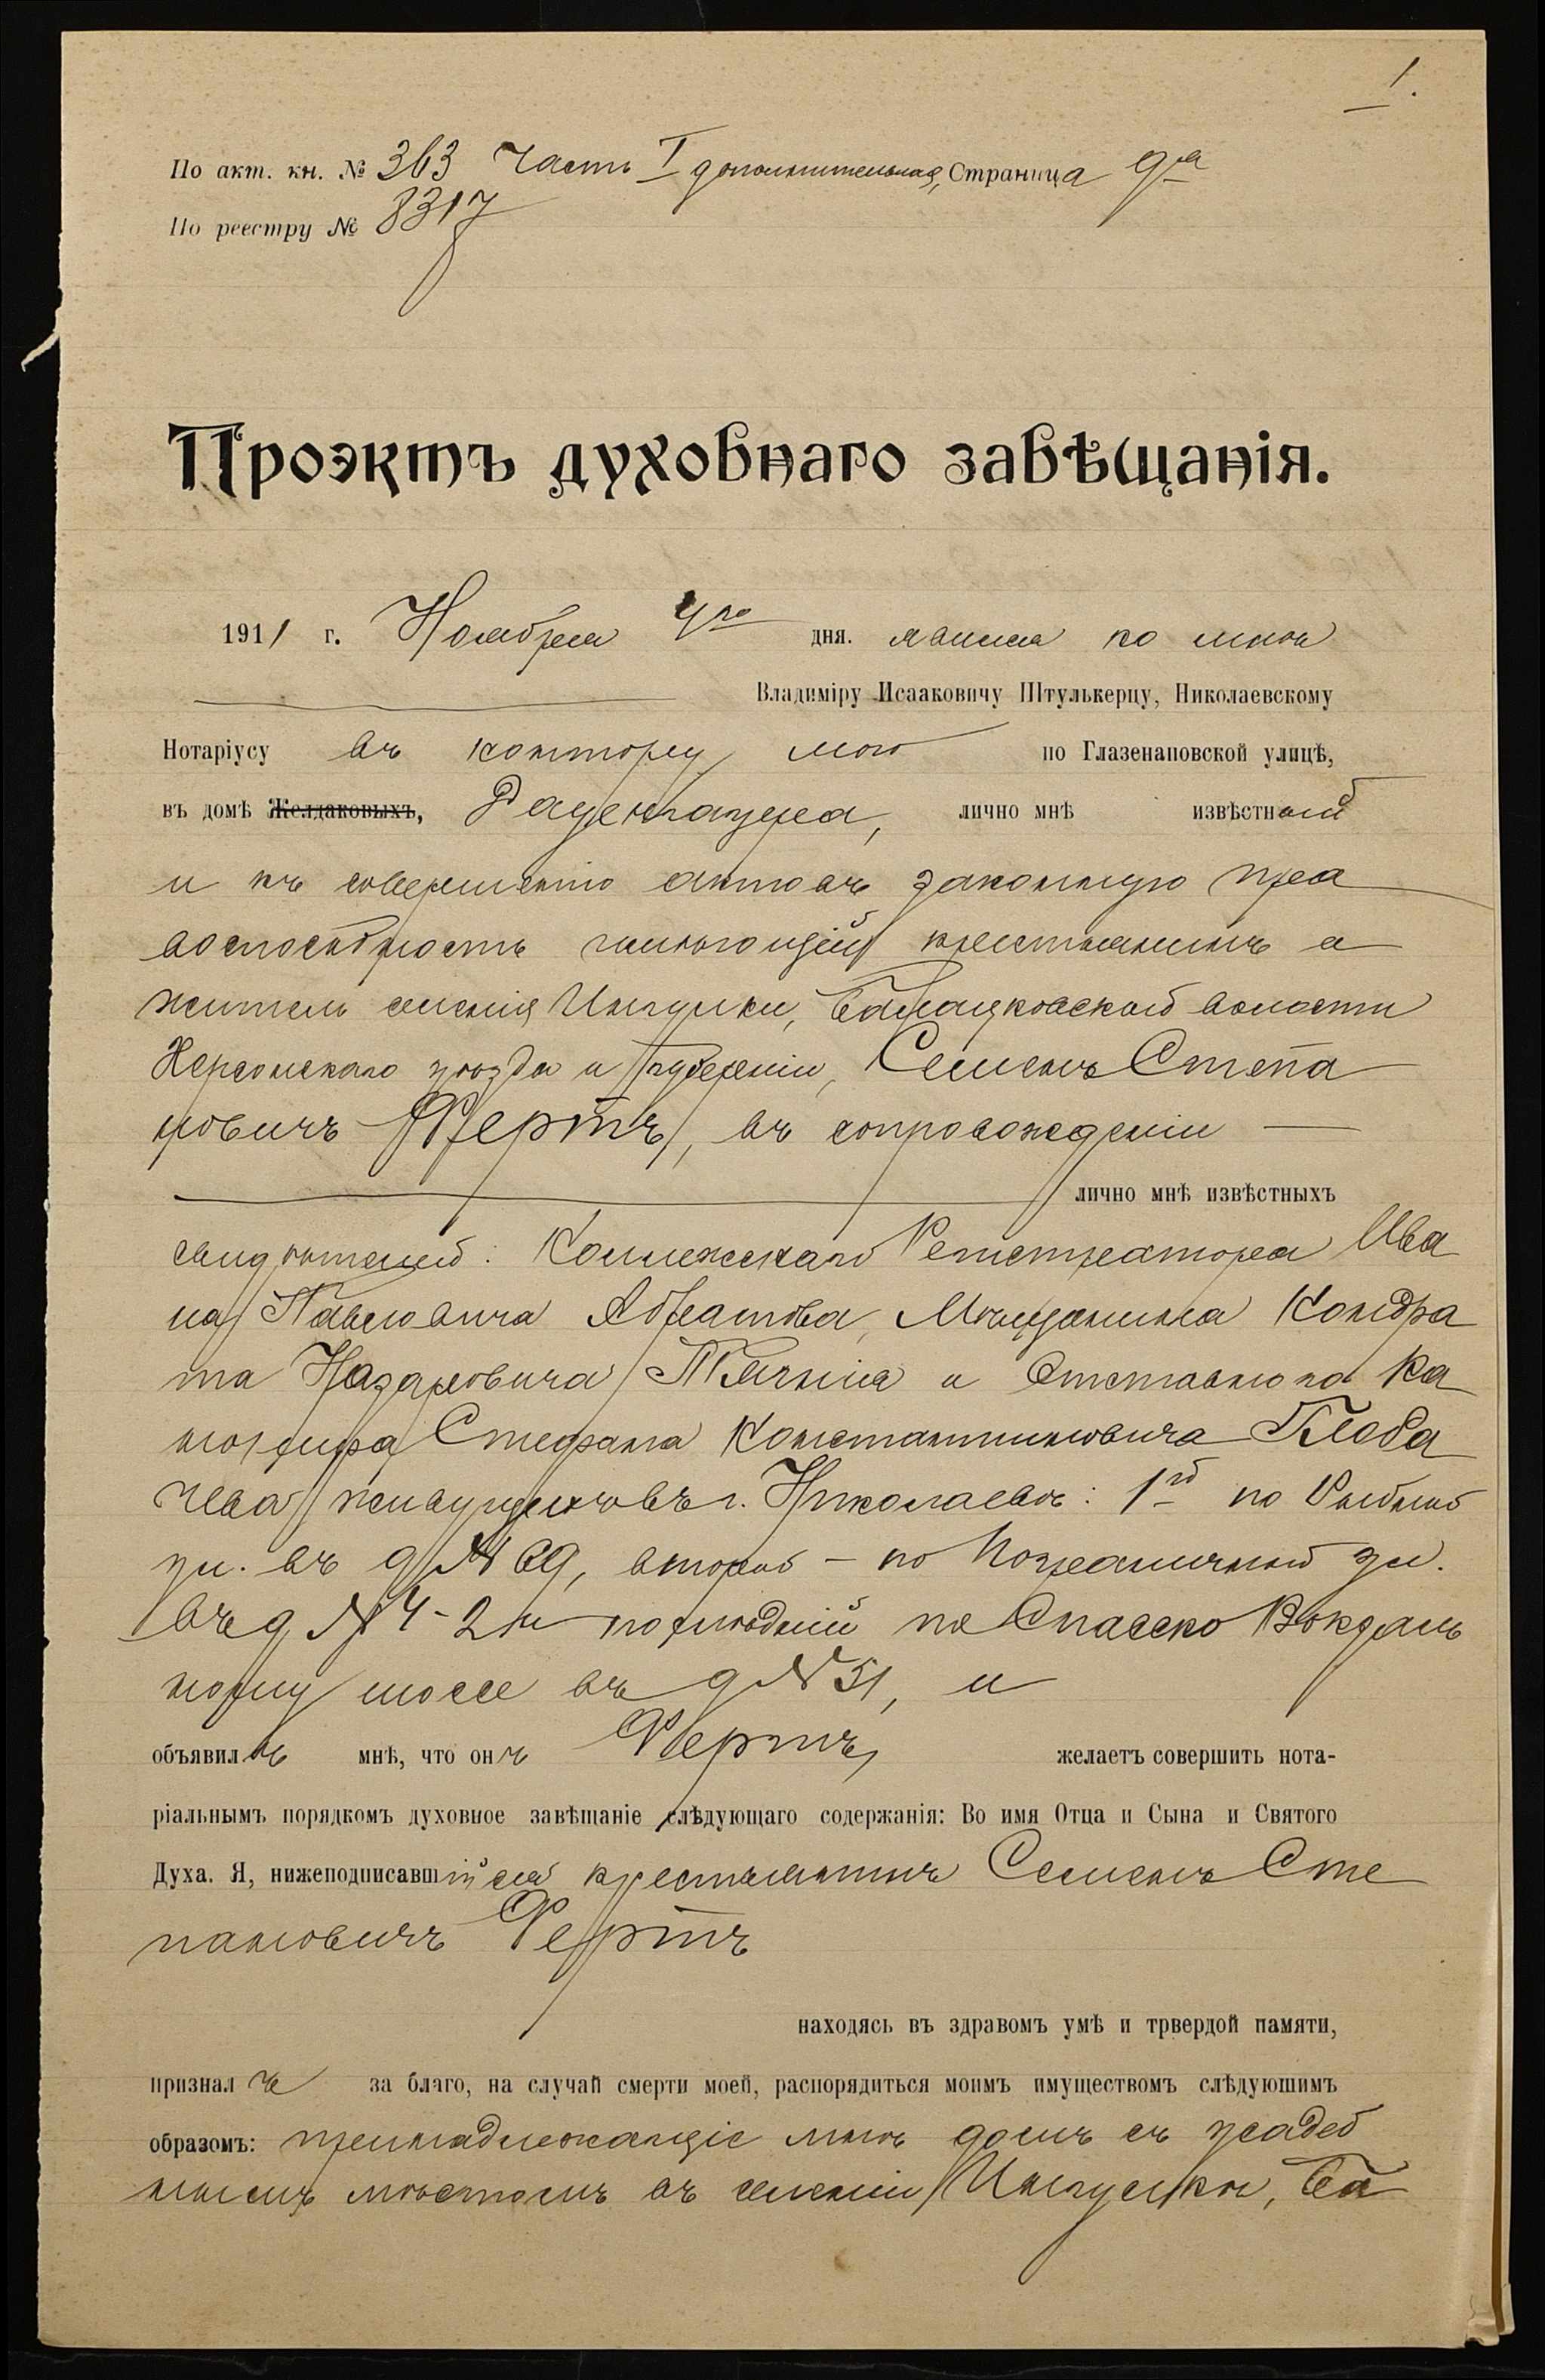 1.
По акт. кн. № 363 Часть I дополнительная, Страница 9ая
По реестру № 8317
Проэктъ духовнаго завѣщанія.
1911 г. Ноября 4го дня. явился ко мнѣ
Владиміру Исааковичу Штулькерцу, Николаевскому
Нотаріусу въ контору мою по Глазенаповской улицѣ,
въ домѣ Желдаковыхъ, лично мнѣ извѣстный
и къ совершенію актовъ законную пра
воспособность имѣющій крестьянинъ а
житель селенія Ингулки, Баращковской волости
Херсонскаго уѣзда и губерніи, Семенъ Степа
новичъ Фертъ, въ сопровожденіи
лично мнѣ извѣстныхъ
свидѣтелей: Коллежскаго Регистратора Ива
на Павловича Абрамова, Мѣщанина Кондра
та Назаровича и Отставного Ка
нонира Стефана Константиновича Глоба
чева живущихъ въ г. Николаевѣ: 1й по Рыбной
ул. въ д № 69, второй - по Пограничной ул.
въ д № 4-2 и послѣдній по Спасско
шоссе въ д № 51, и
объявилъ мнѣ, что онъ Фертъ, желаетъ совершить нота-
ріальнымъ порядкомъ духовное завѣщаніе слѣдующаго содержанія: Во имя Отца и Сына и Святого
Духа. Я, нижеподписавшійся крестьянинъ Семенъ Сте
пановичъ Фертъ
находясь въ здравомъ умѣ и трвердой памяти,
призналъ за благо, на случай смерти моей, распорядиться моимъ имуществомъ слѣдуюшимъ
образомъ: принадлежащіе мнѣ домъ съ усадеб
нымъ мѣстомъ въ селеніи Ингулкѣ, Ба